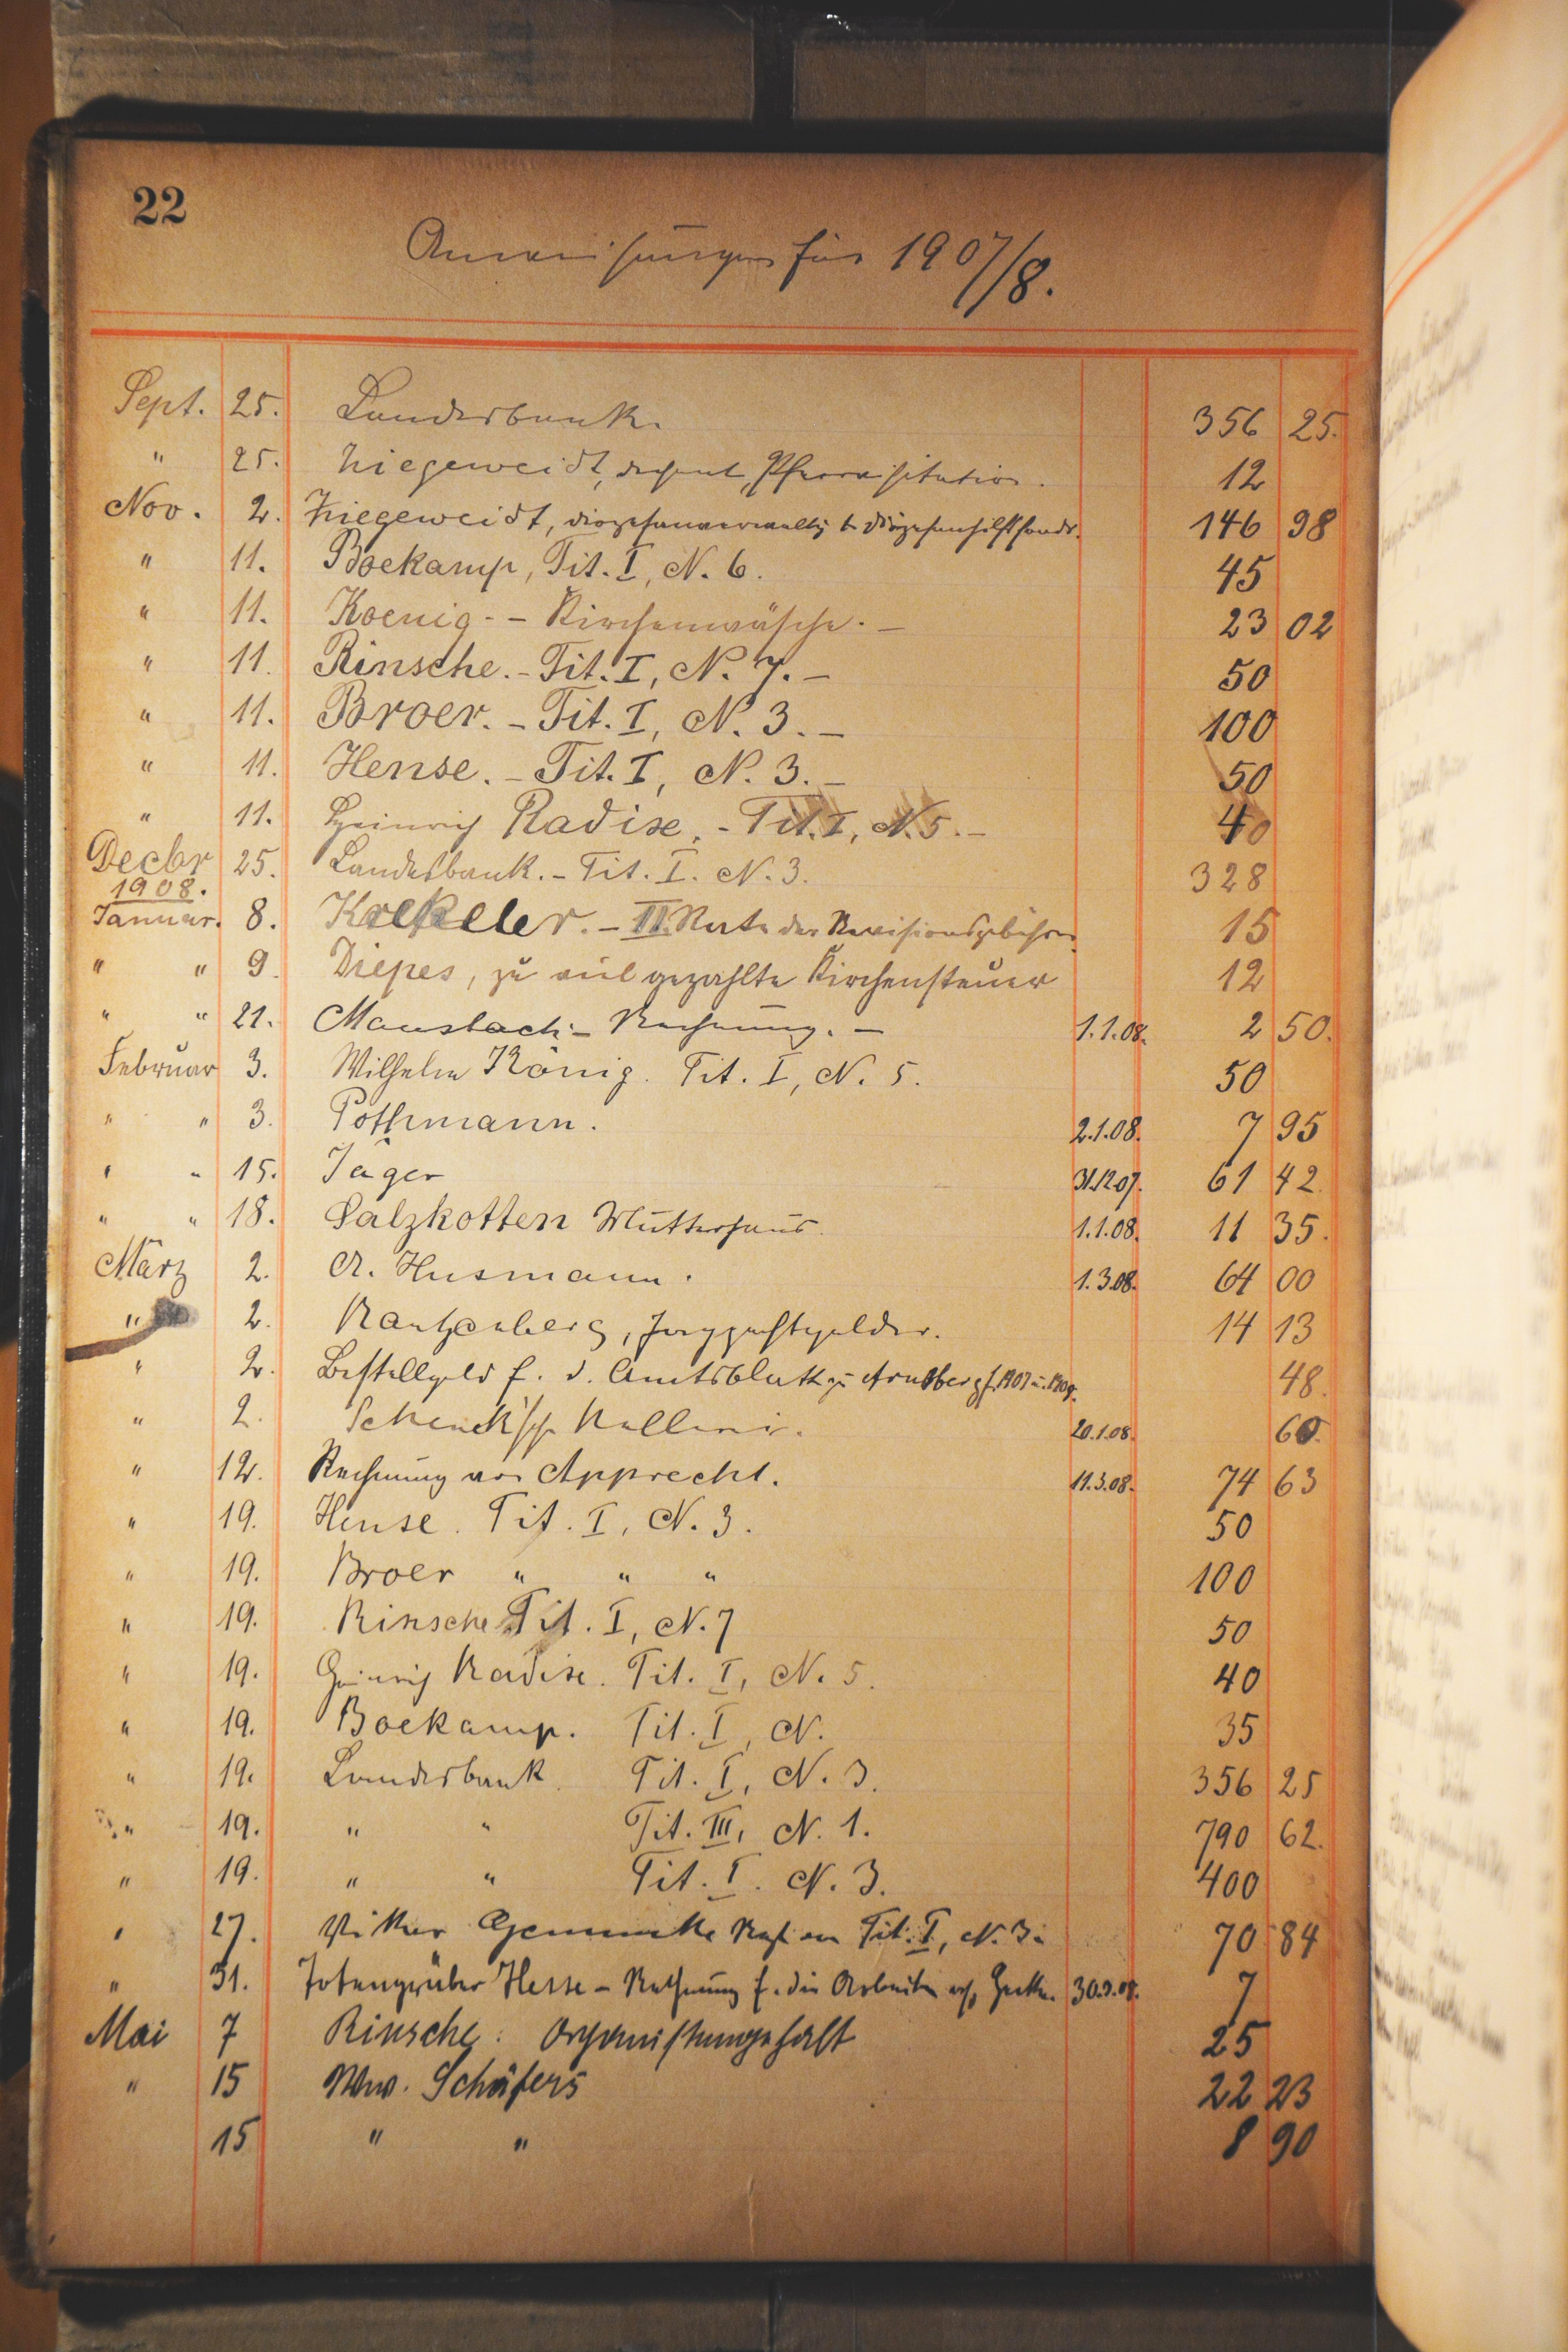 22
Anweisungen für 1907/8.
Sept. 25. Landesbank. 356 25.
" 25. Ziegeweidt, Pfarrvisitation. 12
Nov. 2. Ziegeweidt, Diözesanverwaltg & Diözesanhilfsfonds. 146 98
" 11. Boekamp, Tit. I, N. 6. 45
" 11. Koenig. - Kirchenwäsche. - 23 02
" 11. Rinsche. - Tit. I, N. 7. - 50
" 11. Broer. - Tit. I, N. 3. - 100
" 11. Hense. - Tit. I, N. 3. - 50
" 11. Heinrich Radise. - Tit. I, N. 5. - 40
Decbr 25. Landesbank. - Tit. I. N. 3. 328
1908.
Januar. 8. - II. Rate der Revisionsgebühren 15
" " 9. Diepes, zu viel gezahlte Kirchensteuer 12
" " 21. Mausbach - Rechnung. - 1.1.08. 2 50.
Februar 3. Wilhelm König. Tit. I, N. 5. 50
" " 3. Pothmann. 2.1.08. 7 95
" " 15. Jäger 31.12.07. 61 42.
" " 18. Salzkotten Mutterhaus. 1.1.08. 11 35.
März 2. A. Husmann. 1.3.08. 64 00
" 2. Rantzenberg, 14 13
" 2. Bestellgeld f. d. Amtsblatt zu Arnsberg f. 48.
" 2. Schenck'sche 20.1.08. 60.
" 12. Rechnung von Apprecht. 11.3.08. 74 63
" 19. Hense. Tit. I, N. 3. 50
" 19. Broer " " " 100
" 19. Rinsche Tit. I, N. 7 50
" 19. Heinrich Radise. Tit. I, N. 5. 40
" 19. Boekamp. Tit. I, N. 35
" 19. Landesbank. Tit. I, N. 3. 356 25
" 19. " " Tit. III, N. 1. 790 62.
" 19. " " Tit. I. N. 3. 400
" 27. Vikar Tit. I, N. 3. 70 84
" 31. Totengräber Hesse - Rechnung f. die Arbeiten 30.3.08. 7
Mai 7 Rinsche: Organistengehalt 25
" 15 Ww. Schäfers 22 23
15 " " 8 90